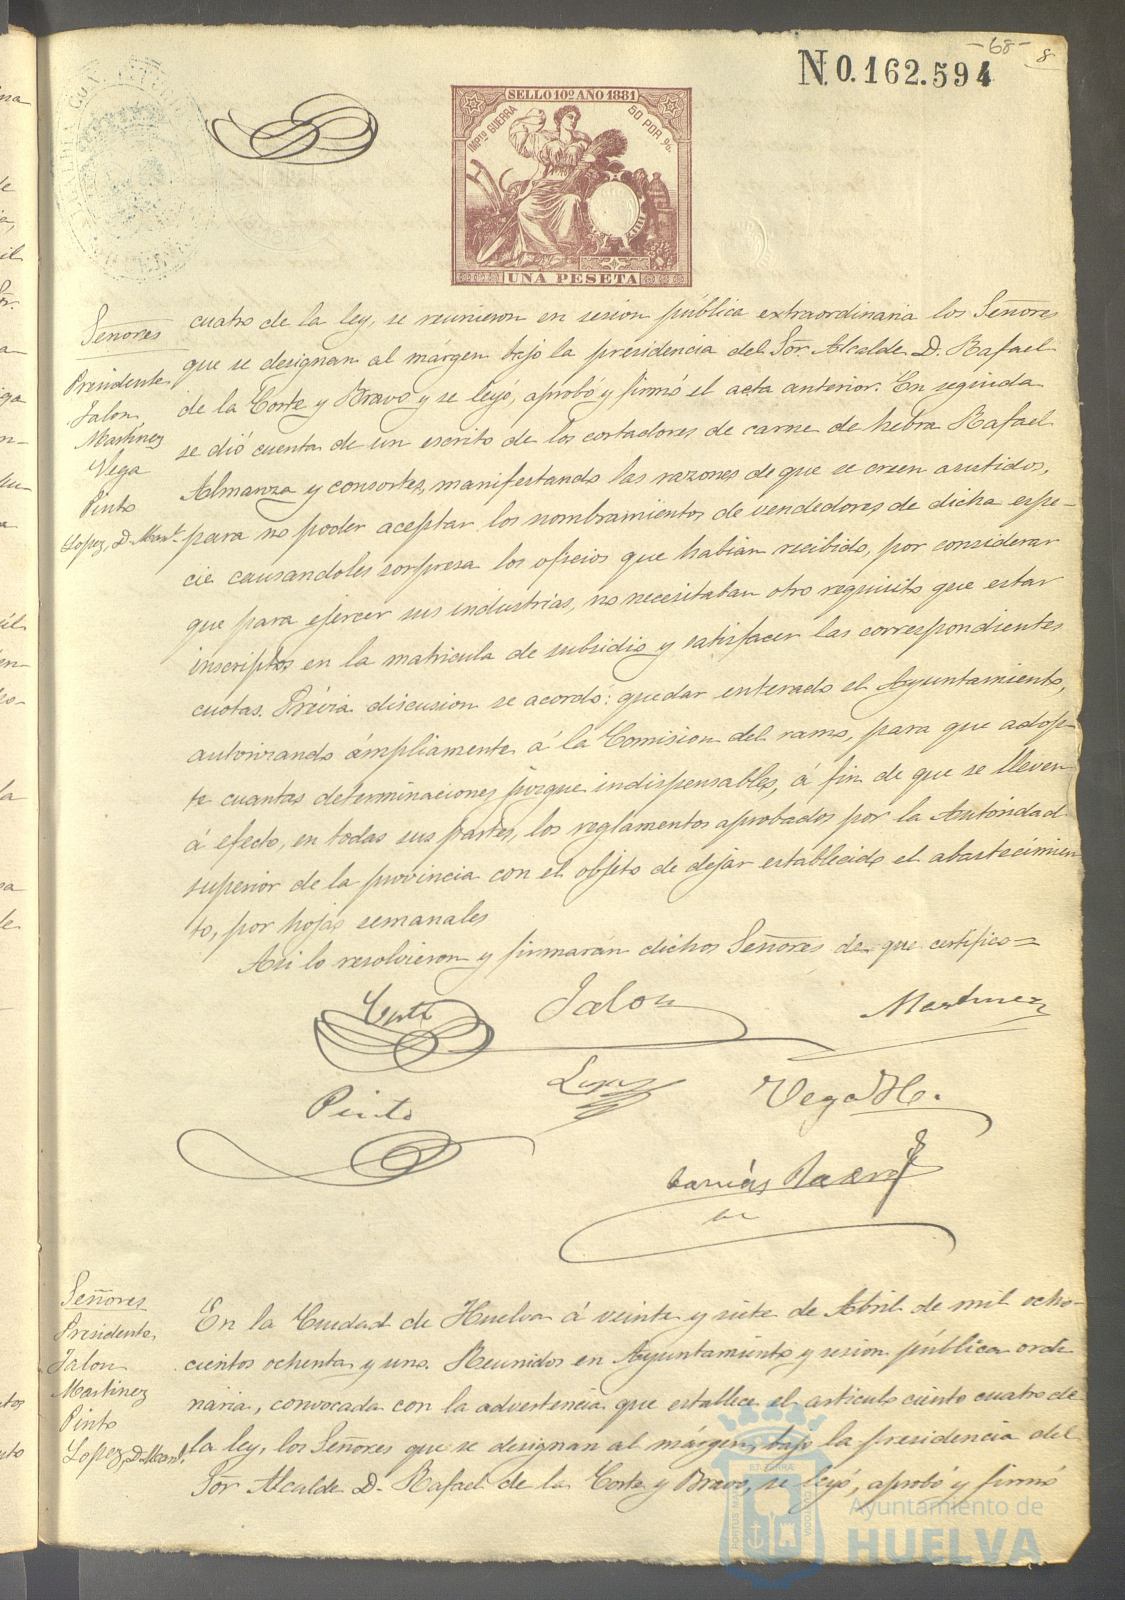 -68-
8
N.0.162.594
SELLO 10º AÑO 1881
IMPTO GUERRA
50 POR %
UNA PESETA
Señores
Presidente
Jalon
Martinez
Vega
Pinto
Lopez, D. Man.l
cuatro de la ley, se reunieron en sesion pública extraordinaria los Señores
que se designan al márgen bajo la presidencia del Sor. Alcalde D. Rafael
de la Corte y Bravo y se leyó, aprobó y firmó el acta anterior. En seguida
se dió cuenta de un escrito de los cortadores de carne de hebra Rafael
Almanza y consortes, manifestando las razones de que se creen asistidos,
para no poder aceptar los nombramientos de vendedores de dicha espe-
cie causandoles sorpresa los oficios que habian recibido, por considerar
que para ejercer sus industrias, no necesitaban otro requisito que estar
inscriptos en la matricula de subsidio y satisfacer las correspondientes
cuotas. Prévia discusion se acordó: quedar enterado el Ayuntamiento,
autorizando ámpliamente á la Comision del ramo, para que adop-
te cuantas determinaciones juzgue indispensables, á fin de que se lleven
á efecto, en todas sus partes, los reglamentos aprobados por la Autoridad
superior de la provincia con el objeto de dejar establecido el abastecimien
to, por hojas semanales
Asi lo resolvieron y firmarán dichos Señores de que certifico=
Corte
Jalon
Martinez
Pinto
Lopez
Vega H.
Señores
Presidente
Jalon
Martinez
Pinto
Lopez, D. Man.l
En la Ciudad de Huelva á veinte y siete de Abril de mil ocho-
cientos ochenta y uno. Reunidos en Ayuntamiento y sesion pública ordi
naria, convocada con la advertencia que establece el articulo ciento cuatro de
la ley, los Señores que se designan al márgen, bajo la presidencia del
Sor. Alcalde D. Rafael de la Corte y Bravo, se leyó, aprobó y firmó
Ayuntamiento de
HUELVA